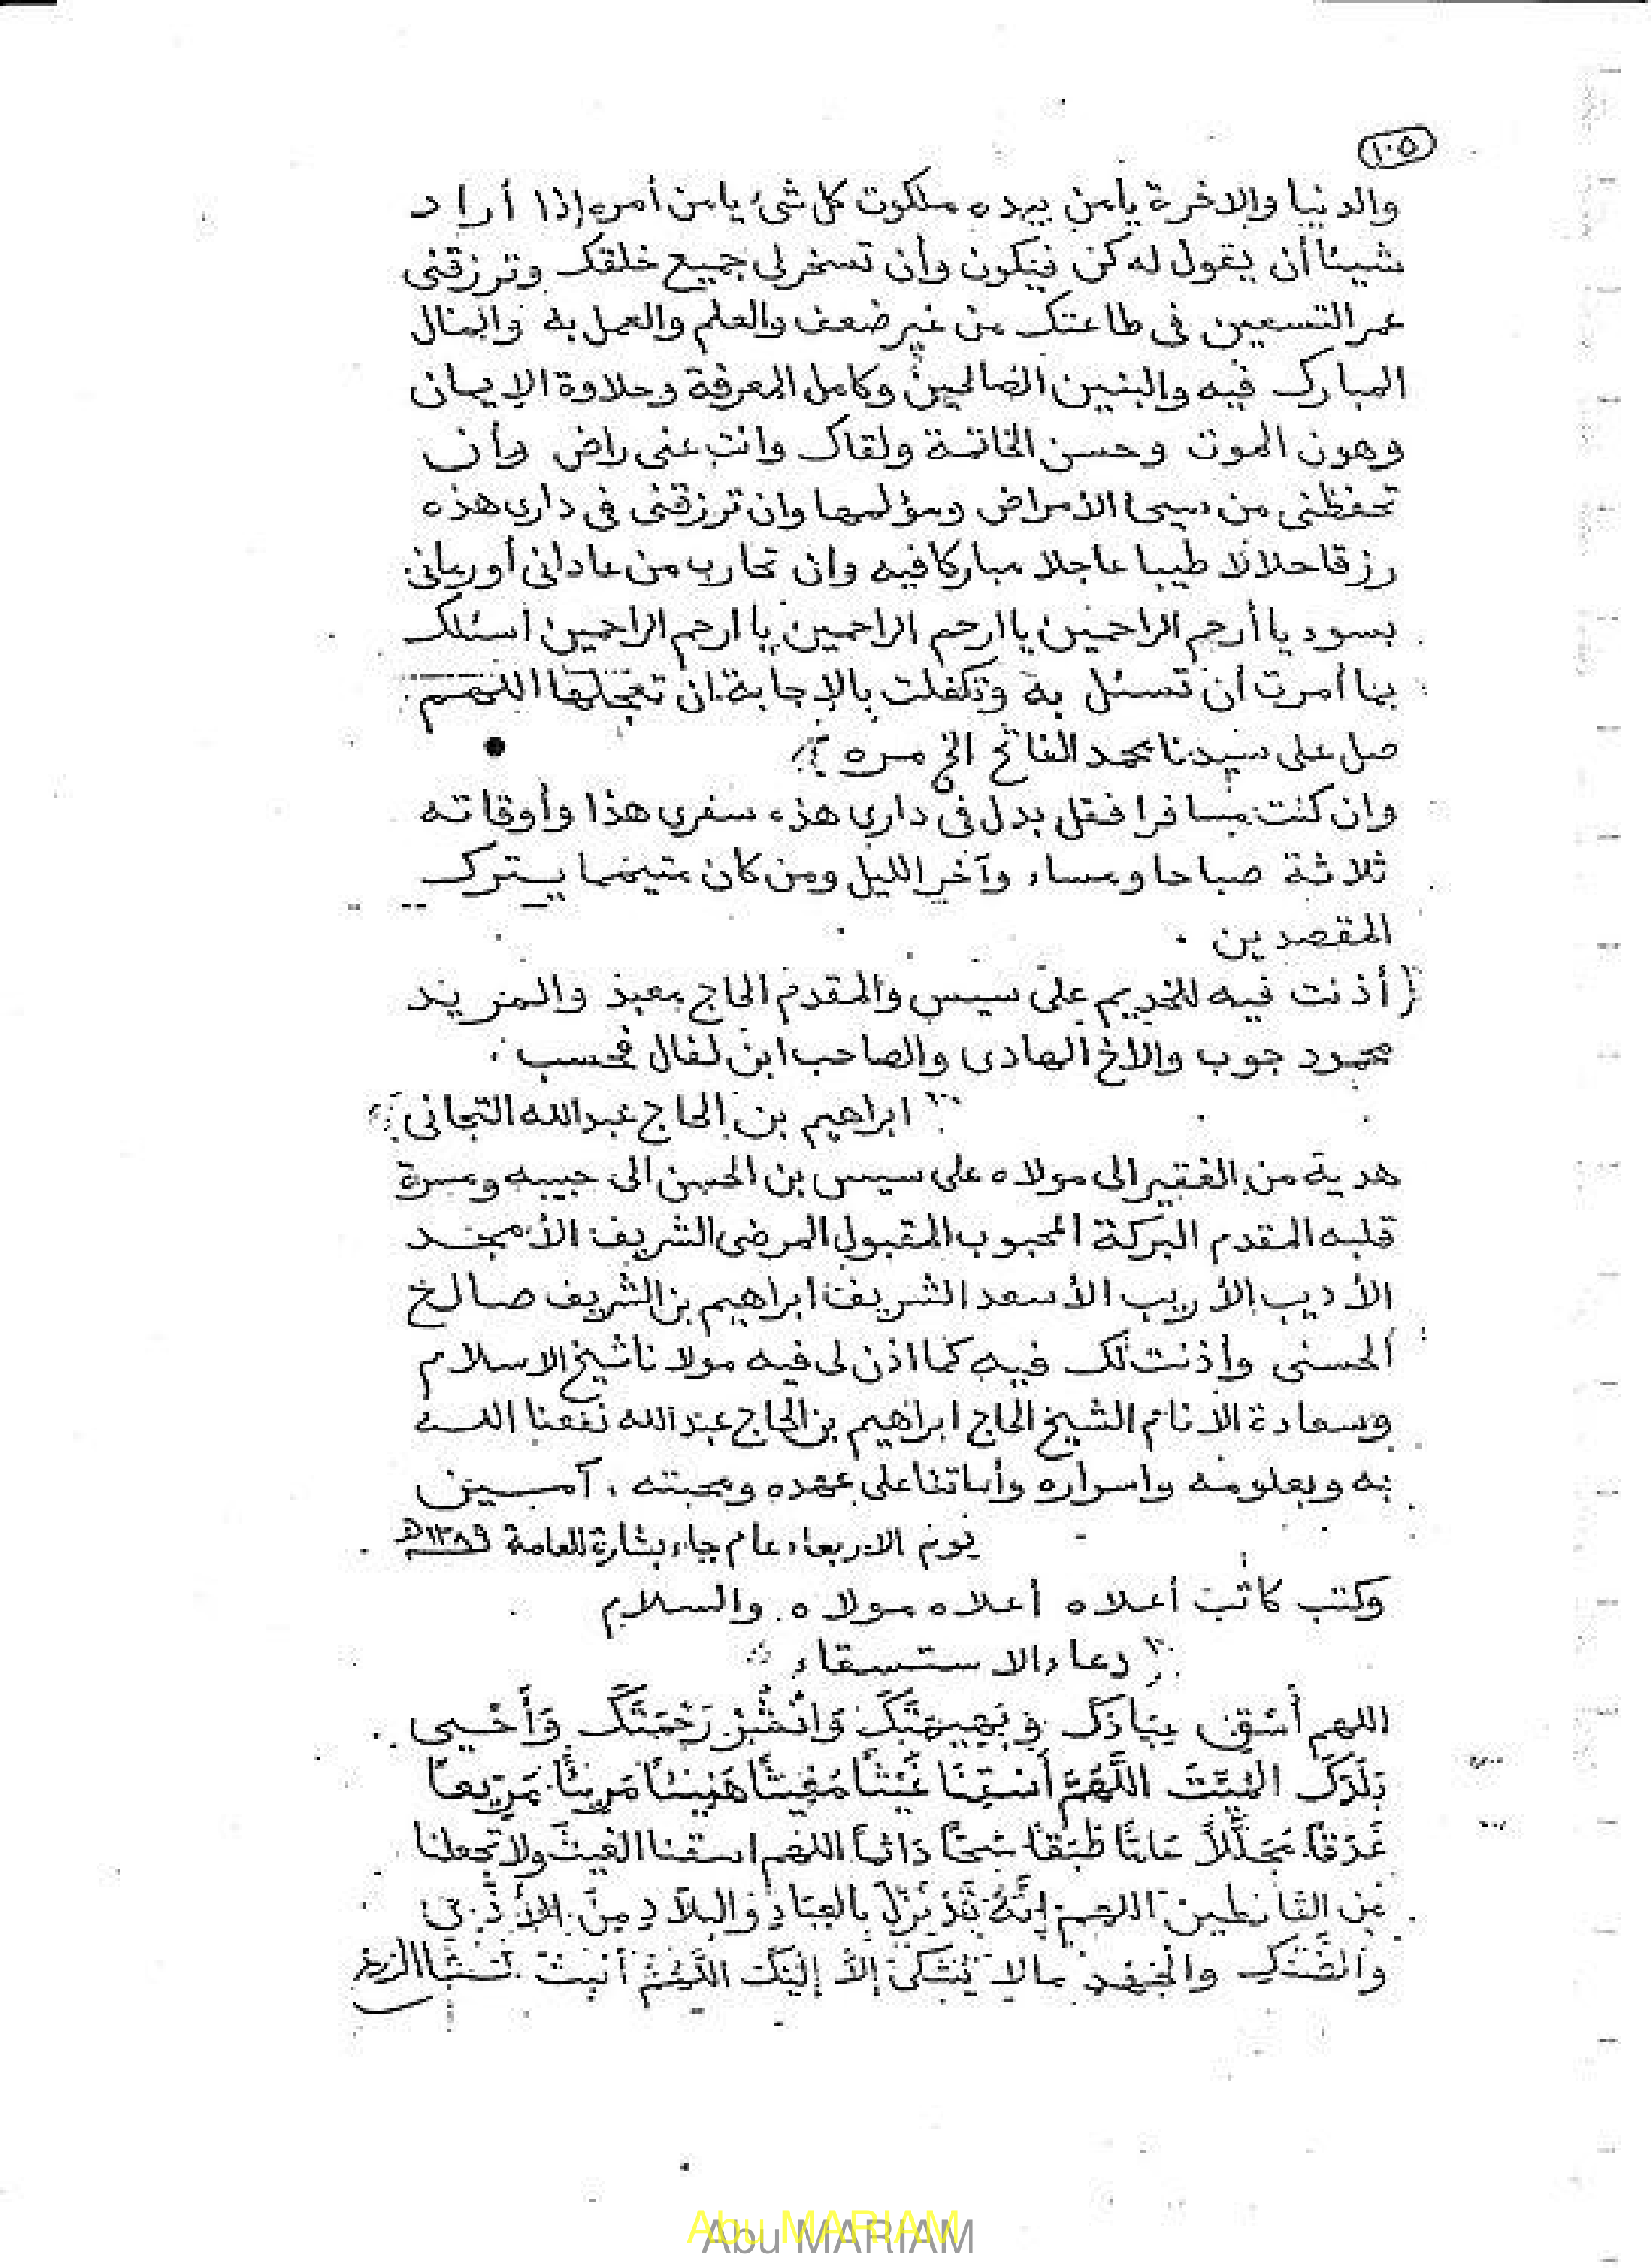 ١٠٥
والدنيا والاخرة يامن بيده ملكوت كل شئ يامن أمره إذا أراد
شيئا أن يقول له كن فيكون وأن تسخر لى جميع خلقك وترزقنى
عمر التسعين فى طاعتك من غير ضعف والعلم والعمل به والمال
المبارك فيه والبنين الصالحين وكامل المعرفة وحلاوة الإيمان
وهون الموت وحسن الخاتمة ولقاك وانت عنى راض وأن
تحفظنى من الأمراض ومؤلمها وان ترزقنى فى دارى هذه
رزقا حلالا طيبا عاجلا مباركا فيه وان تحارب من عادانى أو رمانى
بسوء يا أرحم الراحمين يا ارحم الراحمين يا ارحم الراحمين أسئلك
بما أمرت أن تسئل به وتكفلت بالإجابة ان تعجلها اللهم
صل على سيدنا محمد الفاتح الخ مره
وان كنت مسافرا فقل بدل فى دارى هذه سفرى هذا وأوقاته
ثلاثة صباحا ومساء وآخر الليل ومن كان متيمما يترك
المقصدين .
أذنت فيه للخديم على سيس والمقدم الحاج معبذ والمريد
محمود جوب والأخ الهادى والصاحب ابن لفال فحسب .
ابراهيم بن الحاج عبد الله التجانى
هدية من الفقير الى مولاه على سيس بن الحسن الى حبيبه ومسرة
قلبه المقدم البركة المحبوب المقبول المرضى الشريف الأمجد
الأديب الأريب الأسعد الشريف ابراهيم بن الشريف صالح
الحسنى وأذنت لك فيه كما اذن لى فيه مولانا شيخ الاسلام
وسعادة الأنام الشيخ الحاج ابراهيم بن الحاج عبد الله نفعنا الله
به وبعلومه واسراره وأماتنا على عهده ومحبته . آمين
يوم الاربعاء عام جاء بشارة للعامة ١٣٨٩ ه
وكتب كاتب أعلاه أعلاه مولاه والسلام
دعاء الاستسقاء
اللهم أَسْقِ عِبَادَكَ وَبَهِيمَتَكَ وَانْشُرْ رَحْمَتَكَ وَأَحْيِى
بَلَدَكَ الْمَيِّتَ اللَّهُمَّ أَسْقِنَا غَيْثًا مُغِيثًا هَنِيئًا مَرِيئًا مَرِيعًا
غَدَقًا مُجَلِّلًا عَامًّا طَبَقًا سَحًّا دَائِمًا اللهم اسقنا الغيث ولا تجعلنا
مِن القانطين اللهم إِنَّهُ قَدْ نَزَلَ بالعِبَادِ وَالبِلَادِ مِنَ
وَالضَّنْكِ والْجَهْدِ مالا يُشْتَكَى إِلَّا إِلَيْكَ اللَّهُمَّ أَنْبِتْ لَنَا الزرع
Abu MARIAM